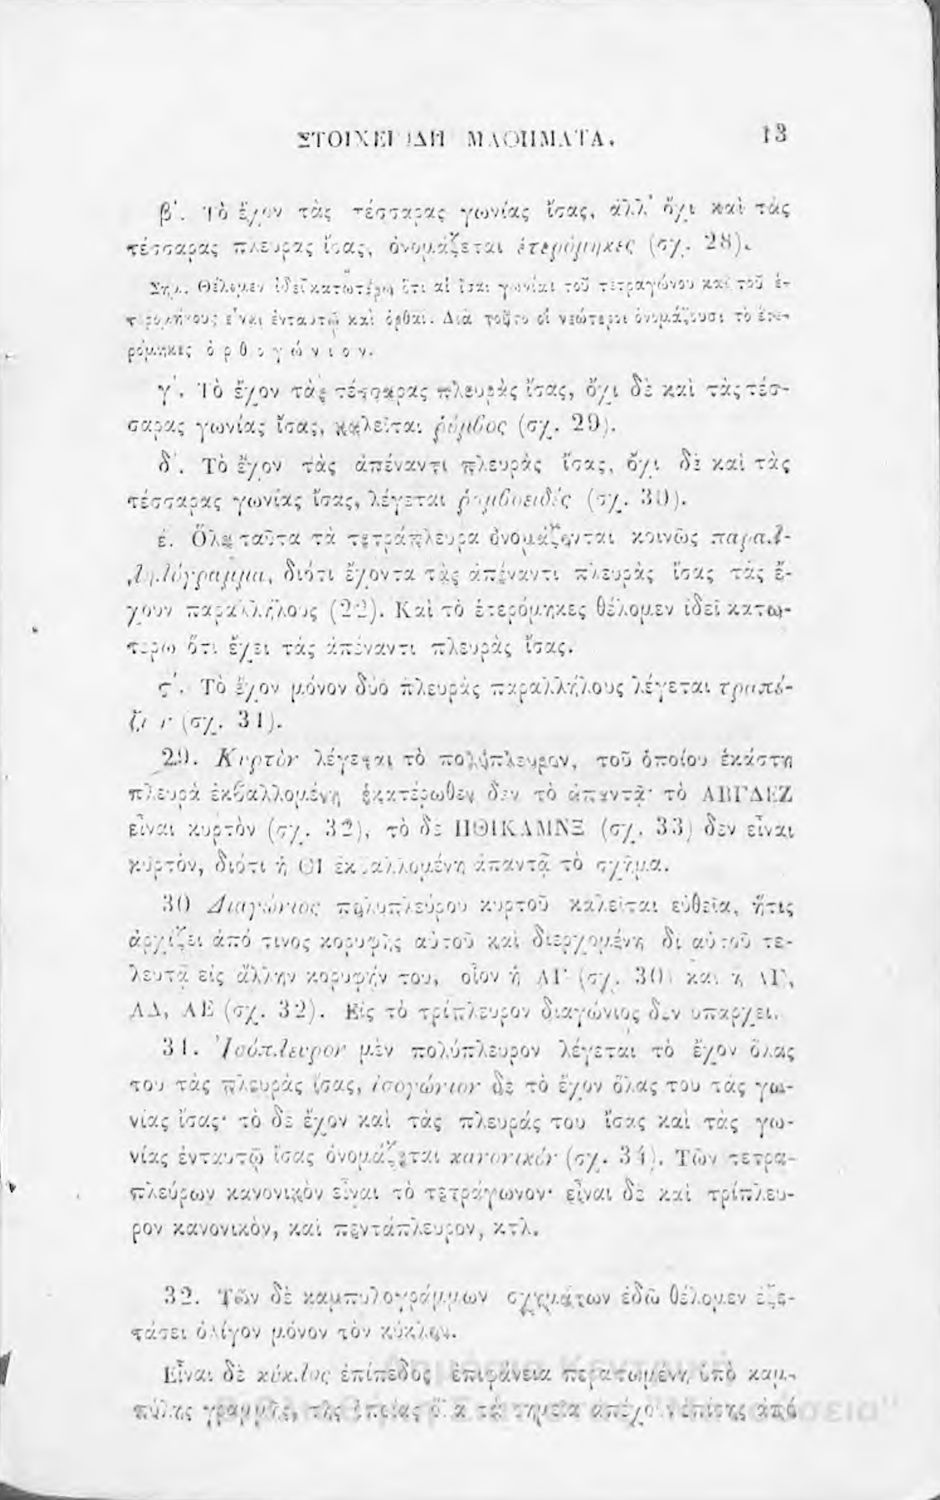 ΣΤΟΙΧΕΙΩΔΗ ΜΑΘΗΜΑΤΑ. 13
β΄. Τὸ ἔχον τὰς τέσσαρας γωνίας ἴσας, ἀλλ' ὄχι καὶ τὰς
τέσσαρας πλευρας ἴσας, ὀνομάζεται ἑτερόμηκες (σχ. 28).
Σημ. Θέλομεν ἰδεῖ κατωτέρω ὅτι αἱ ἴσαι γωνίαι τοῦ τετραγώνου καὶ τοῦ ἑ-
τερομήκους εἶναι ἐνταυτῷ καὶ ὀρθαί. Διὰ τοῦτο οἱ νεώτεροι ὀνομάζουσι τὸ ἑτε-
ρόμηκες ὀρθογώνιον.
γ΄. Τὸ ἔχον τὰς τέσσαρας πλευρὰς ἴσας, ὄχι δὲ καὶ τὰς τέσ-
σαρας γωνίας ἴσας, καλεῖται ῥόμβος (σχ. 29).
δ΄. Τὸ ἔχον τὰς ἀπέναντι πλευρὰς ἴσας, ὄχι δὲ καὶ τὰς
τέσσαρας γωνίας ἴσας, λέγεται ῥομβοειδὲς (σχ. 30).
έ. Ὅλα ταῦτα τὰ τετράπλευρα ὀνομάζονται κοινῶς παραλ-
ληλόγραμμα, διότι ἔχοντα τὰς ἀπέναντι πλευρὰς ἴσας τὰς ἔ-
χουν παραλλήλους (22). Καὶ τὸ ἑτερόμηκες θέλομεν ἰδεῖ κατω-
τέρω ὅτι ἔχει τὰς ἀπέναντι πλευρὰς ἴσας.
ς΄. Τὸ ἔχον μόνον δύο πλευρὰς παραλλήλους λέγεται τραπέ-
ζιον (σχ. 31).
29. Κυρτὸν λέγεται τὸ πολύπλευρον, τοῦ ὁποίου ἑκάστη
πλευρὰ ἐκβαλλομένη ἑκατέρωθεν δὲν τὸ ἀπαντᾷ· τὸ ΑΒΓΔΕΖ
εἶναι κυρτὸν (σχ. 32), τὸ δὲ ΠΘΙΚΛΜΝΞ (σχ. 33) δὲν εἶναι
κυρτὸν, διότι ἡ ΘΙ ἐκβαλλομένη ἀπαντᾷ τὸ σχῆμα.
30 Διαγώνιος πολυπλεύρου κυρτοῦ καλεῖται εὐθεῖα, ἥτις
ἀρχίζει ἀπό τινος κορυφῆς αὐτοῦ καὶ διερχομένη δι αὐτοῦ τε-
λευτᾷ εἰς ἄλλην κορυφήν του, οἷον ἡ ΑΓ (σχ. 30) καὶ ἡ ΑΓ,
ΑΔ, ΑΕ (σχ. 32). Εἰς τὸ τρίπλευρον διαγώνιος δὲν υπαρχει.
31. Ἰσόπλευρον μὲν πολύπλευρον λέγεται τὸ ἔχον ὅλας
του τὰς πλευρὰς ἴσας, ἰσογώνιον δὲ τὸ ἔχον ὅλας του τὰς γω-
νίας ἴσας· τὸ δὲ ἔχον καὶ τὰς πλευράς του ἴσας καὶ τὰς γω-
νίας ἐνταυτῷ ἴσας ὀνομάζεται κανονικὸν (σχ. 34). Τῶν τετρα-
πλεύρων κανονικὸν εἶναι τὸ τετράγωνον· εἶναι δὲ καὶ τρίπλευ-
ρον κανονικὸν, καὶ πεντάπλευρον, κτλ.
32. Τῶν δὲ καμπυλογράμμων σχημάτων ἐδῶ θέλομεν ἐξε-
τάσει ὀλίγον μόνον τὸν κύκλον.
Εἶναι δὲ κύκλος ἐπίπεδος ἐπιφάνεια περατωμένη ὑπὸ καμ-
πύλης γραμμῆς, τῆς ὁποίας ὅλα τὰ σημεῖα ἀπέχουν ἐπίσης ἀπὸ